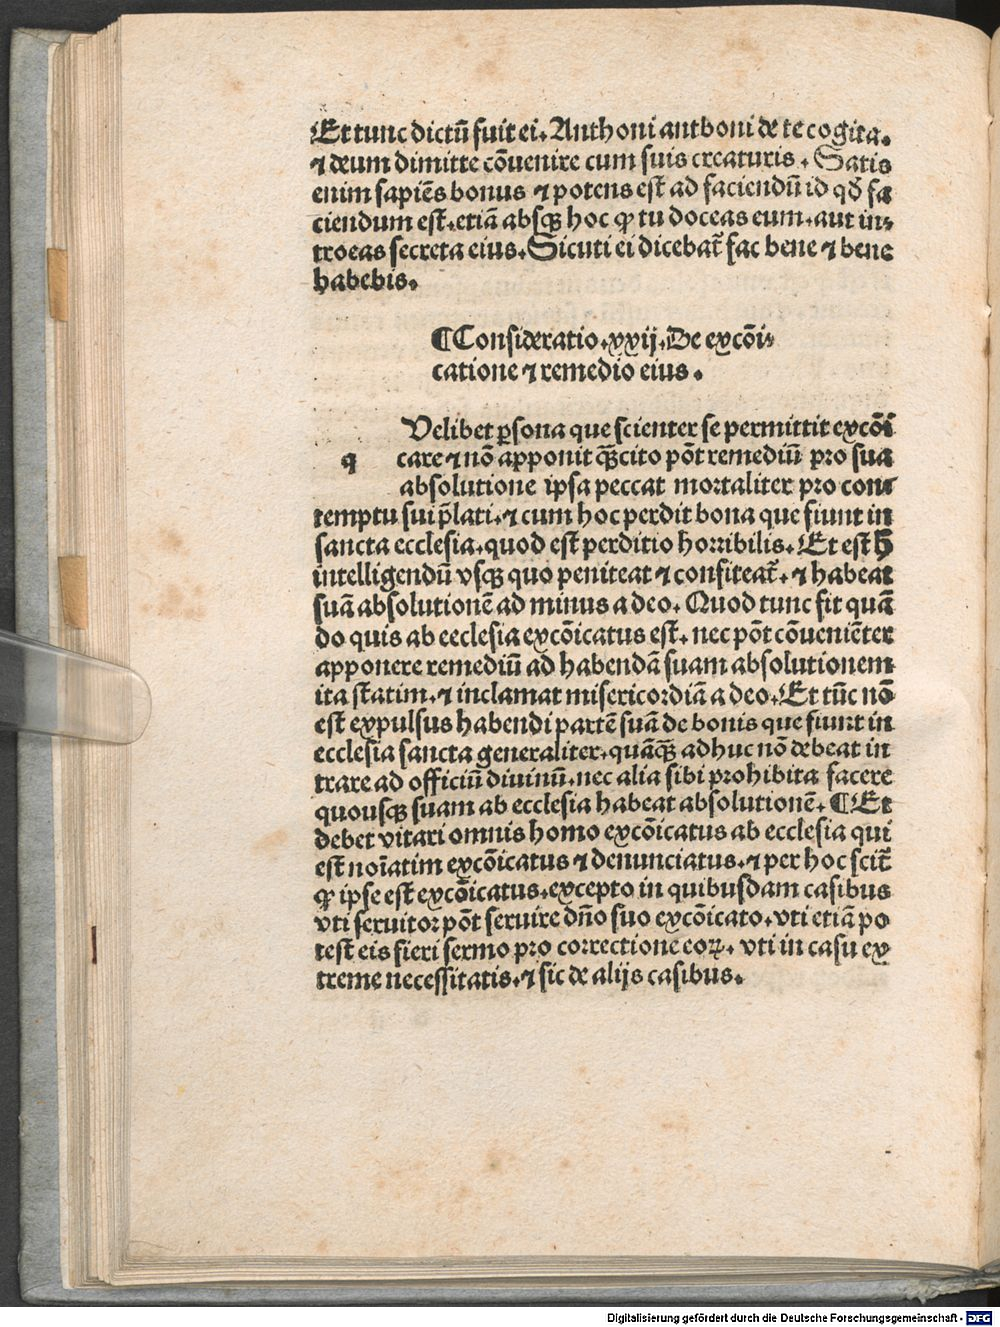 Et tunc dictū fuit ei. Anthoni anthoni de te cogita.
⁊ deum dimitte cōuenire cum suis creaturis. Satis
enim sapiēs bonus ⁊ potens est ad faciendū id qđ fa
ciendum est. etiā absqꝫ hoc ꝙ tu doceas eum. aut in⸗
troeas secreta eius. Sicuti ei dicebat̄ fac bene ⁊ bene
habebis.
¶Consideratio. xxij. De excōi⸗
catione ⁊ remedio eius.
Uelibet ꝑsona que scienter se permittit excōi
q care ⁊ nō apponit qꝫcito pōt remediū pro sua
absolutione ipsa peccat mortaliter pro con⸗
temptu sui p̄lati. ⁊ cum hoc perdit bona que fiunt in
sancta ecclesia. quod est perditio horribilis. Et est h̄
intelligendū vsqꝫ quo peniteat ⁊ confiteat̄. ⁊ habeat
suā absolutionē ad minus a deo. Quod tunc fit quā
do quis ab ecclesia excōicatus est. nec pōt cōueniēter
apponere remediū ad habendā suam absolutionem
ita statim. ⁊ inclamat misericordiā a deo. Et tūc nō
est expulsus habendi partē suā de bonis que fiunt in
ecclesia sancta generaliter. quāqꝫ adhuc nō debeat in
trare ad officiū diuinū. nec alia sibi prohibita facere
quousqꝫ suam ab ecclesia habeat absolutionē. ¶Et
debet vitari omnis homo excōicatus ab ecclesia qui
est noīatim excōicatus ⁊ denunciatus. ⁊ per hoc scit̄
ꝙ ipse est excōicatus. excepto in quibusdam casibus
vti seruitor pōt seruire dño suo excōicato. vti etiā po
test eis fieri sermo pro correctione eoꝝ. vti in casu ex
treme necessitatis. ⁊ sic de alijs casibus.
Digitalisierung gefördert durch die Deutsche Forschungsgemeinschaft - DFG